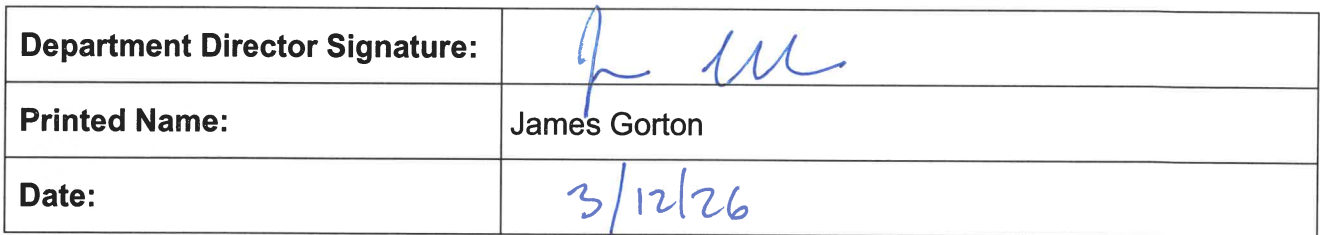 Department Director Signature:
Printed Name: James Gorton
Date: 3/12/26